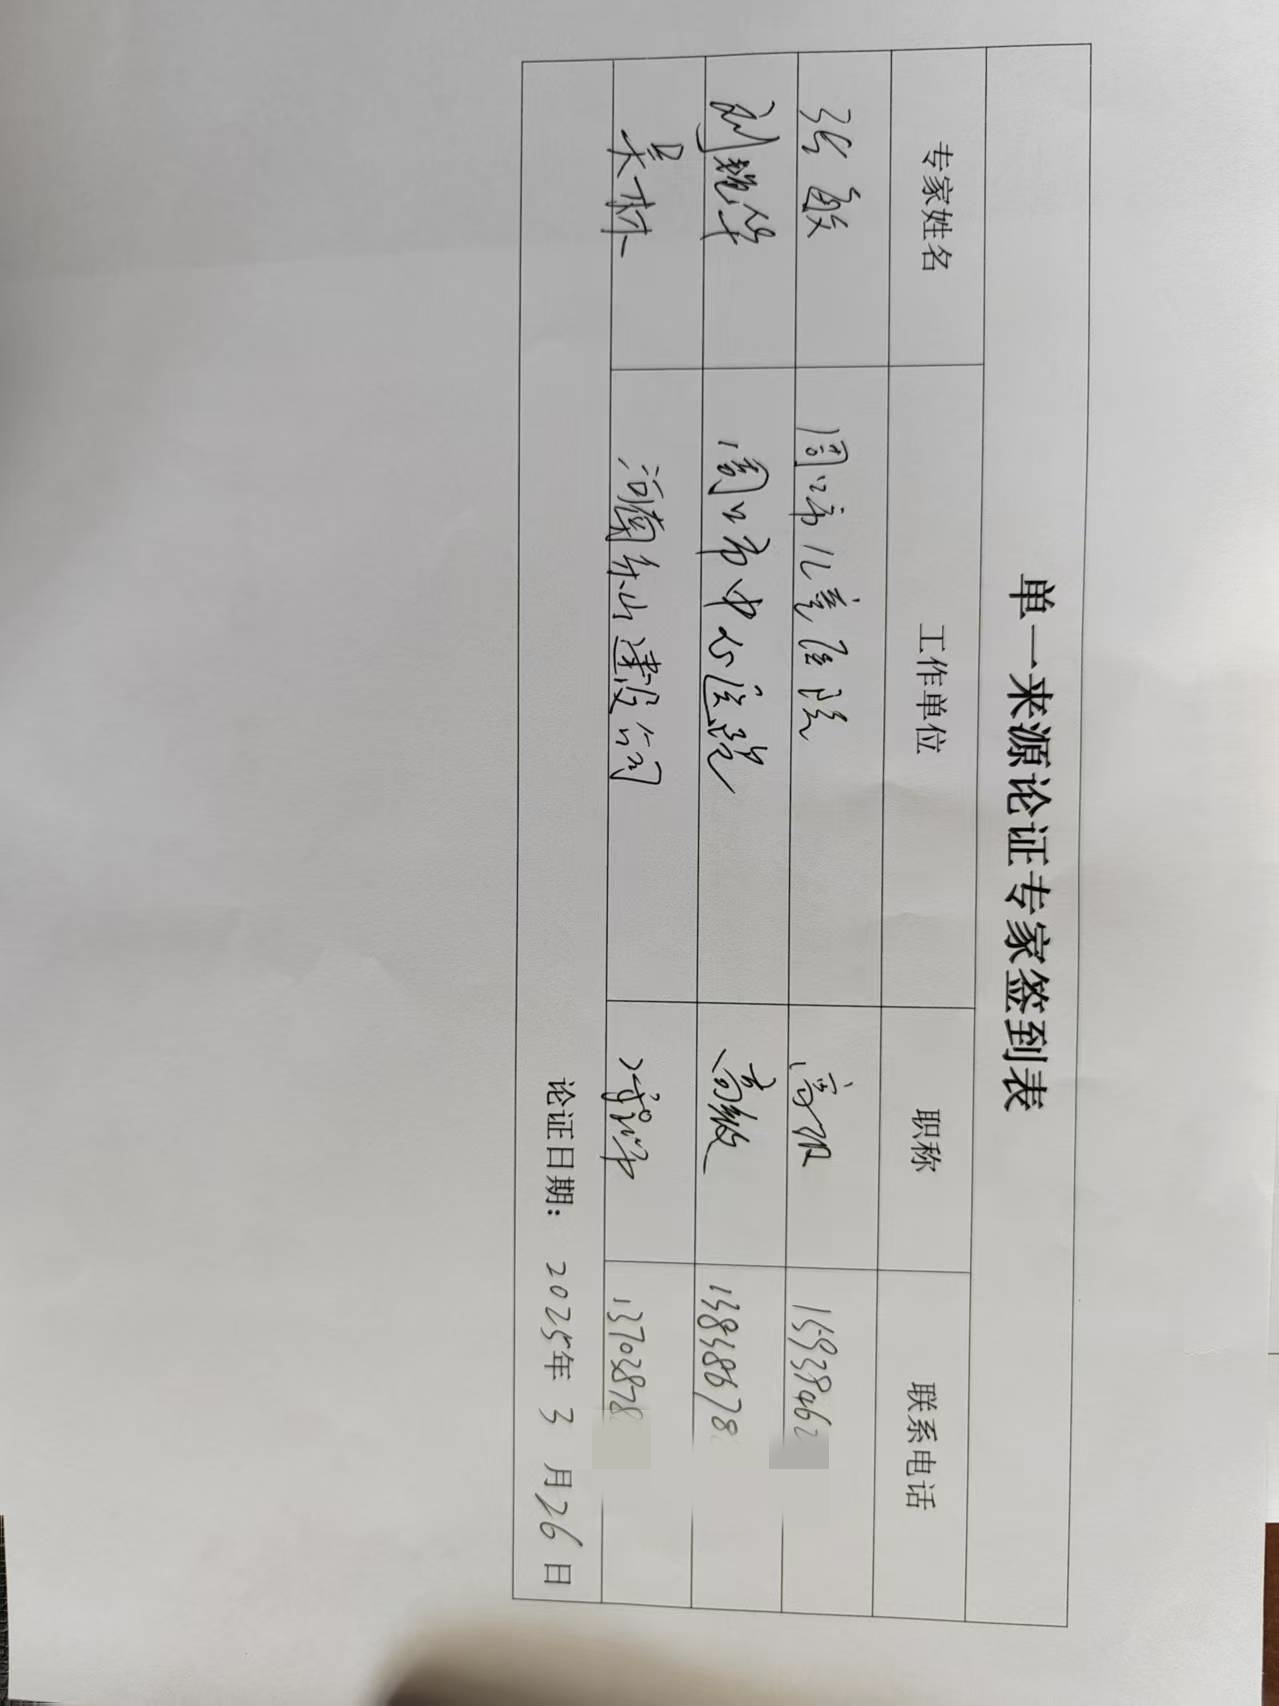 单一来源论证专家签到表
专家姓名 工作单位 职称 联系电话
张敏 周口市儿童医院 高级 15939462
刘魏华 周口市中心医院 高级 13838678
吴林 河南东山建设公司 13703878
论证日期: 2025年 3 月 26 日